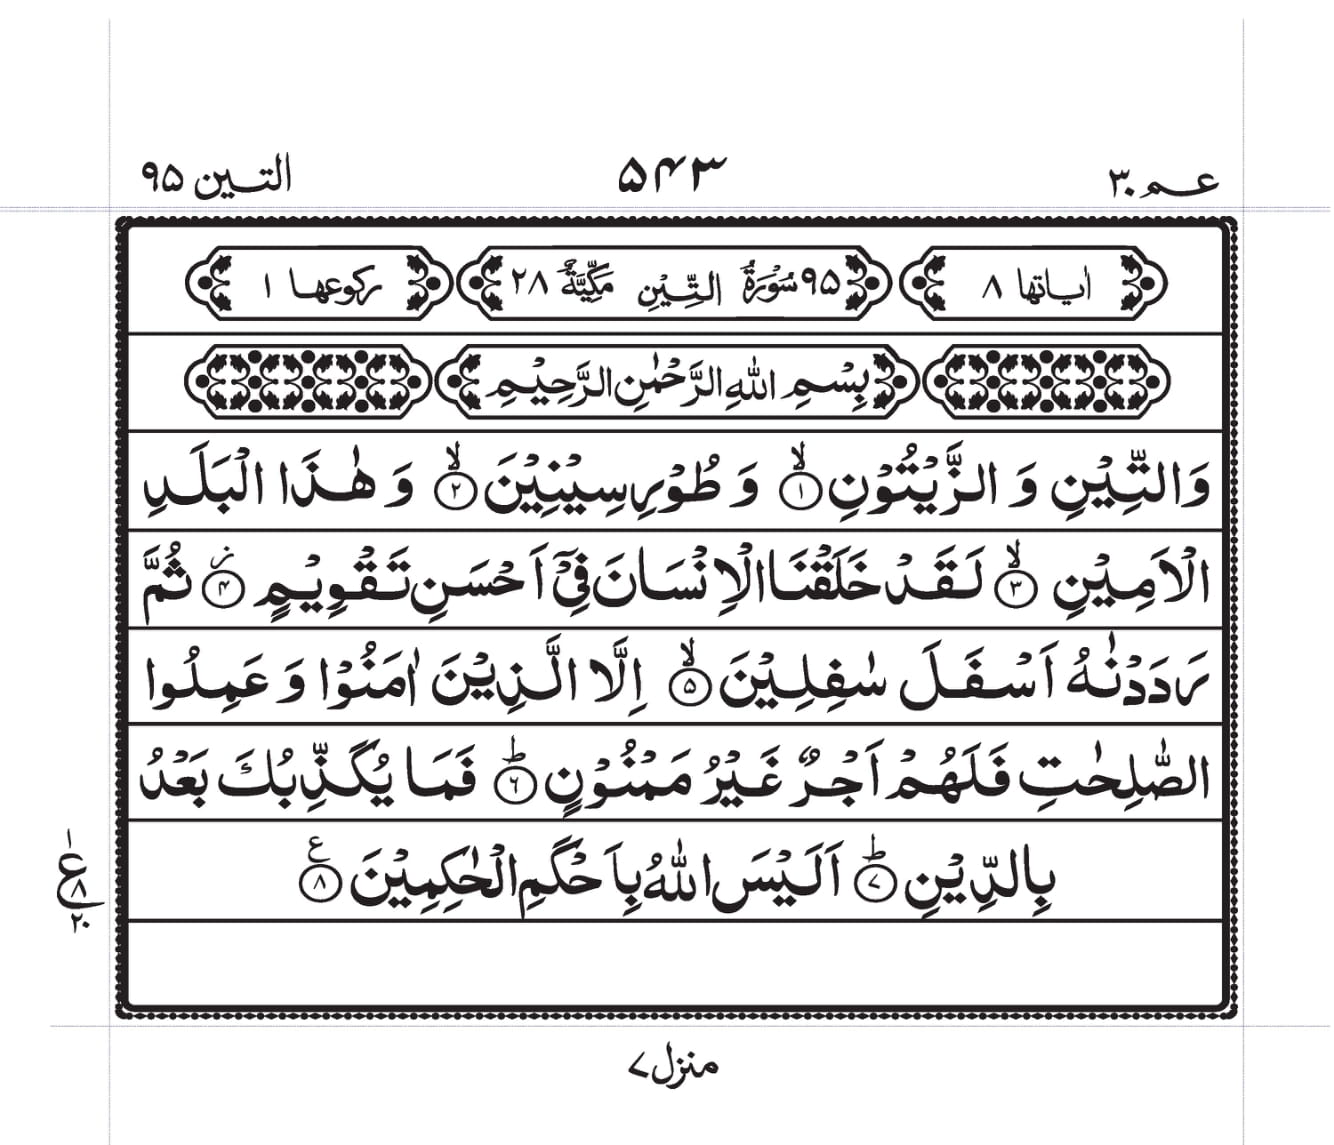 عم ۳۰ ۵۴۳ التين ۹۵
اٰياتها ۸ ۹۵ سُوْرَةُ التِّيْنِ مَكِّيَّةٌ ۲۸ ركوعها ۱
بِسْمِ اللّٰهِ الرَّحْمٰنِ الرَّحِيْمِ
وَالتِّيْنِ وَ الزَّيْتُوْنِ ۙ‏﴿۱﴾ وَ طُوْرِ سِيْنِيْنَ ۙ‏﴿۲﴾ وَ هٰذَا الْبَلَدِ
الْاَمِيْنِ ۙ‏﴿۳﴾ لَقَدْ خَلَقْنَا الْاِنْسَانَ فِيْٓ اَحْسَنِ تَقْوِيْمٍ ز ﴿۴﴾ ثُمَّ
رَدَدْنٰهُ اَسْفَلَ سٰفِلِيْنَ ۙ‏﴿۵﴾ اِلَّا الَّذِيْنَ اٰمَنُوْا وَ عَمِلُوا
الصّٰلِحٰتِ فَلَهُمْ اَجْرٌ غَيْرُ مَمْنُوْنٍ ؕ‏﴿۶﴾ فَمَا يُكَذِّبُكَ بَعْدُ
بِالدِّيْنِ ؕ‏﴿۷﴾ اَلَيْسَ اللّٰهُ بِاَحْكَمِ الْحٰكِمِيْنَ ع ﴿۸﴾
۱
ع
۸
۲۰
منزل ۷